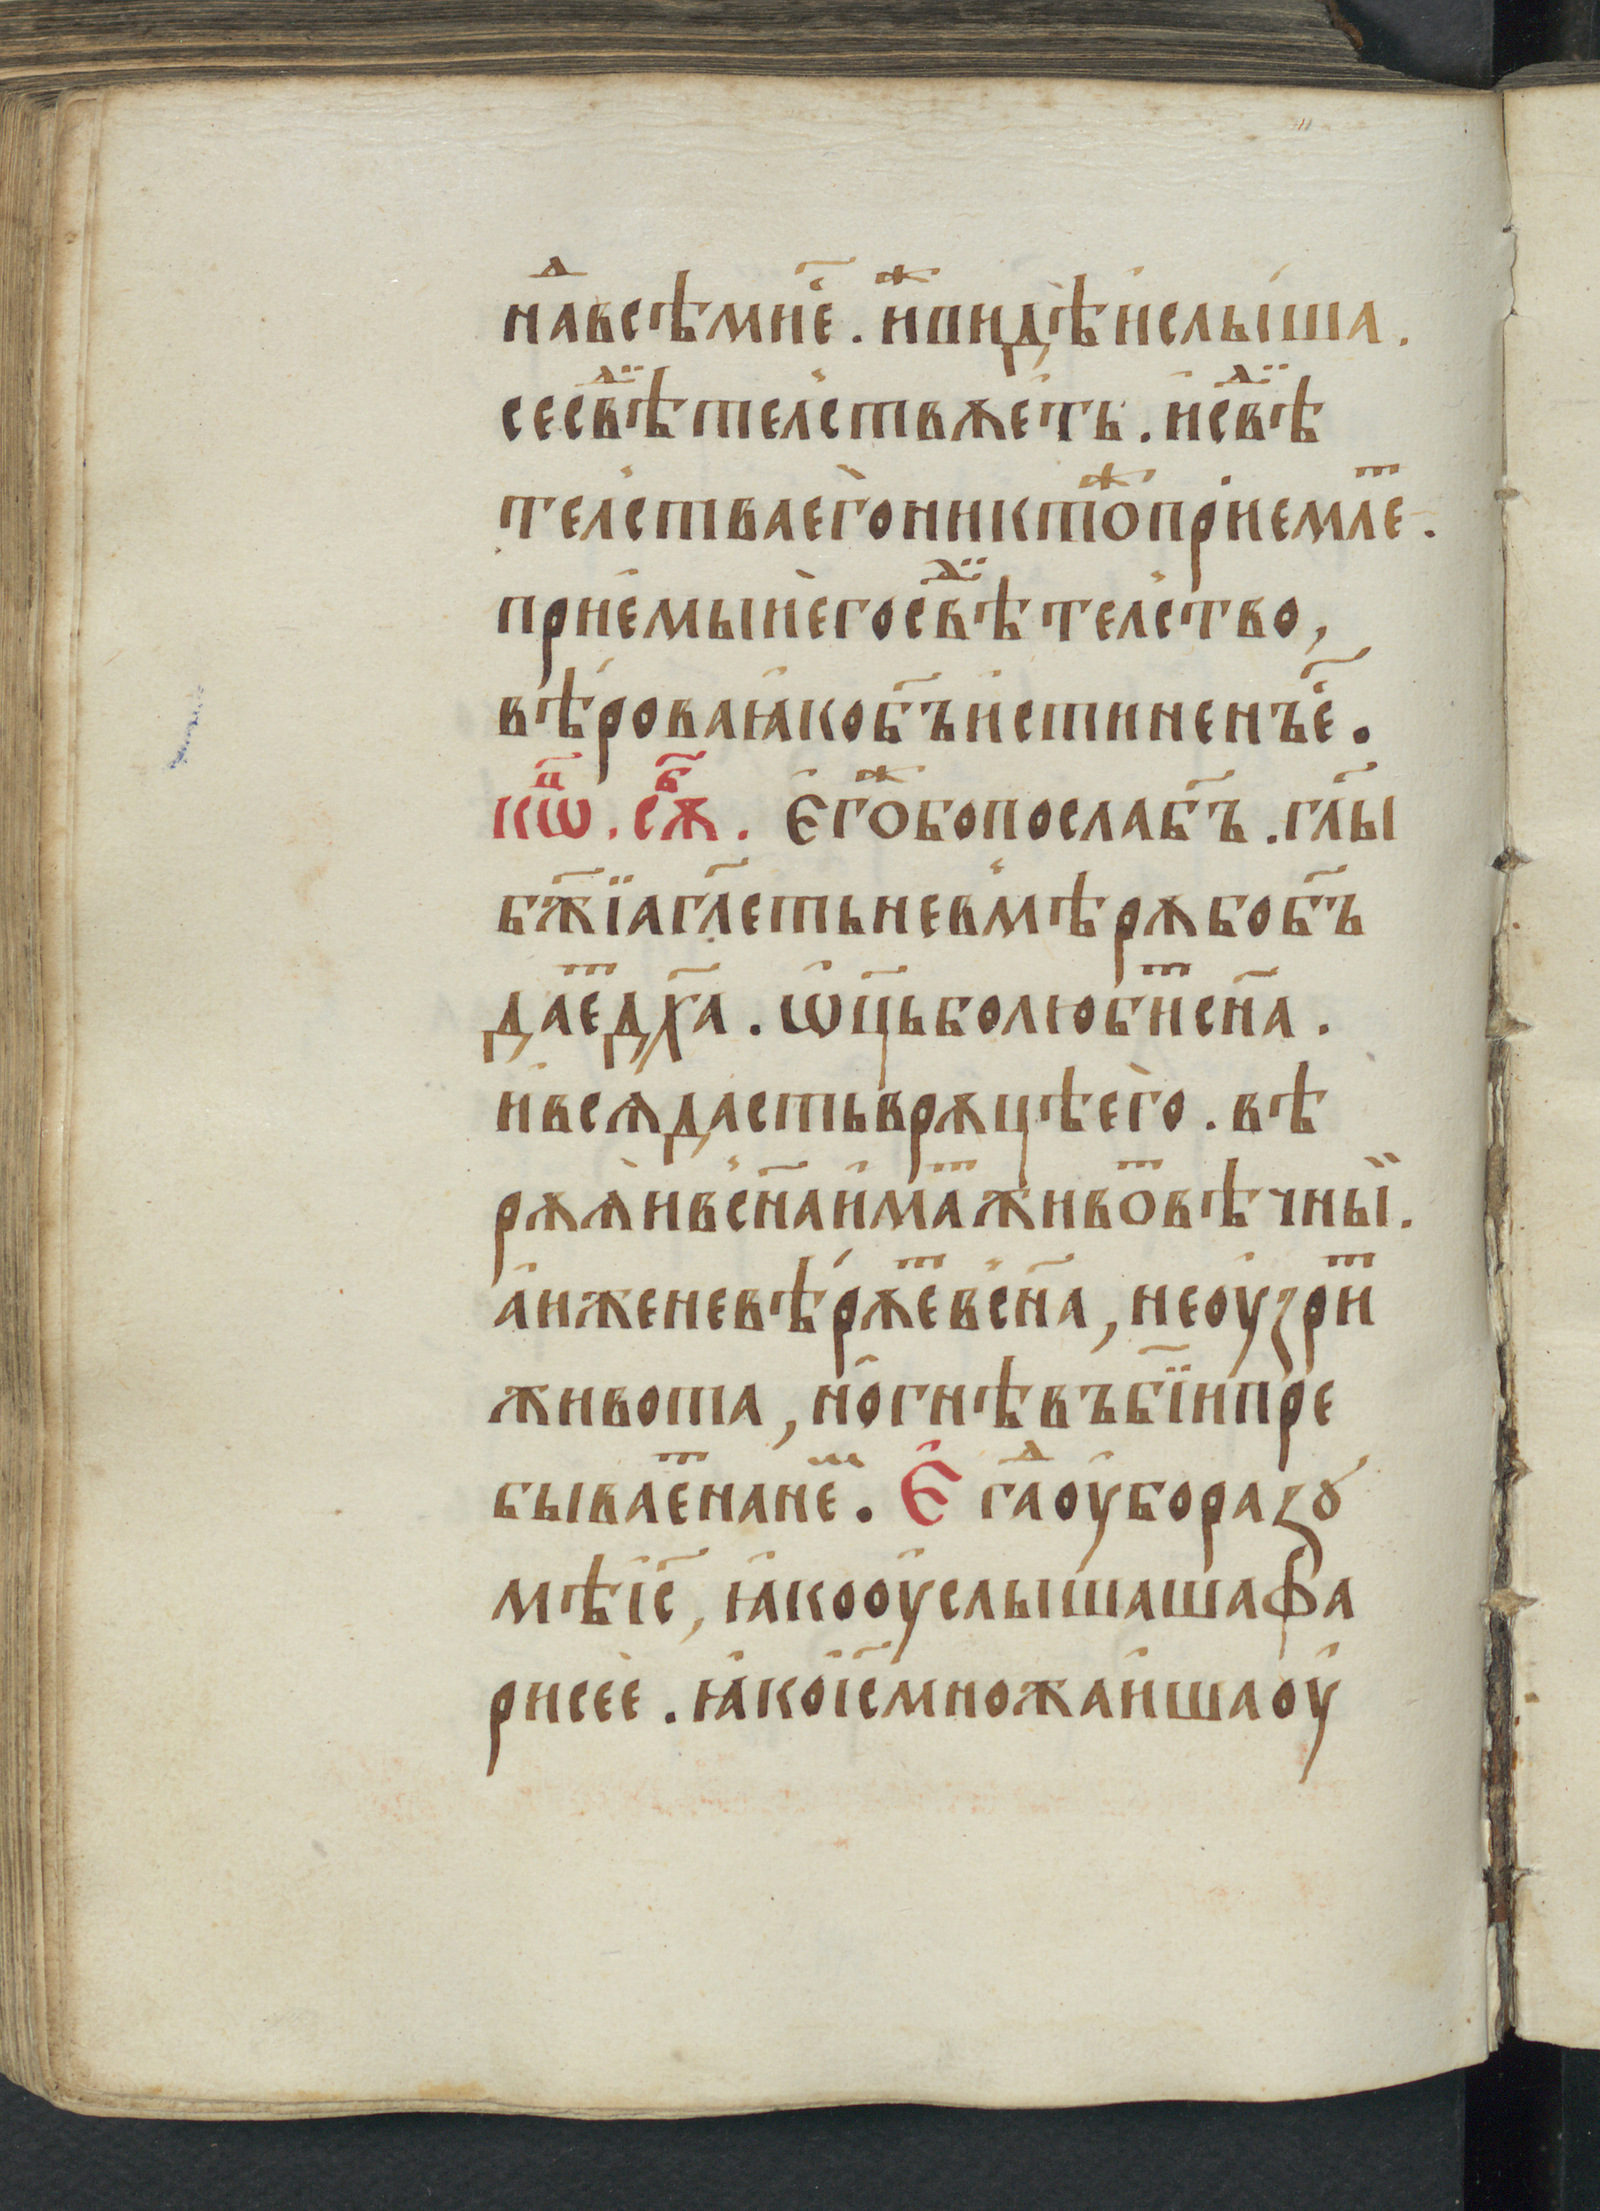 наⷣвсѣмиⷭ҇е҆. и҆ⷤвидѣ и҆слы́ша.
сесвⷣѣтел̾ствꙋе҆ть. и҆свⷣѣ
тел̾стваегѝониктоⷤпрїе́млеⷮ.
прїе́мыи҆егосвⷣѣтел̾ство,
вѣ́роваꙗ҆кобг҃ъи҆стиненъе҆ⷭ҇.
кѡⷩ҇. сꙋⷠ҇. Е҆гоⷤбопослабг҃ъ. гл҃ы
бж҃їагл҃етьнев̾мѣрꙋбобг҃ъ
даеⷮдх҃а. ѡ҆ц҃ьболюбиⷮсн҃а.
и҆всѧдастьврꙋцѣего̀. вѣ
рꙋѧ̀ив̾сн҃аи҆маⷮживоⷮвѣчныи҆.
а҆иженевѣ́рꙋеⷮв̾сн҃а, неоу҆зриⷮ
живота, но҆гнѣвъбж҃їи҆пре
бываеⷮнанеⷨ. Е҆гдаоу҆боразꙋ
мѣі҆с҃, ꙗ҆кооу҆слышашафа
рисеѐ. ꙗ҆коі҆с҃множаи҆шаоу҆